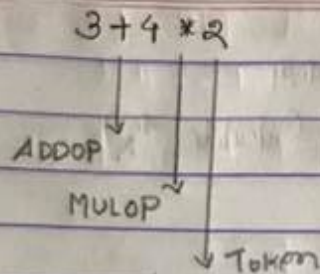 3+4*2
ADDOP
MULOP
Token